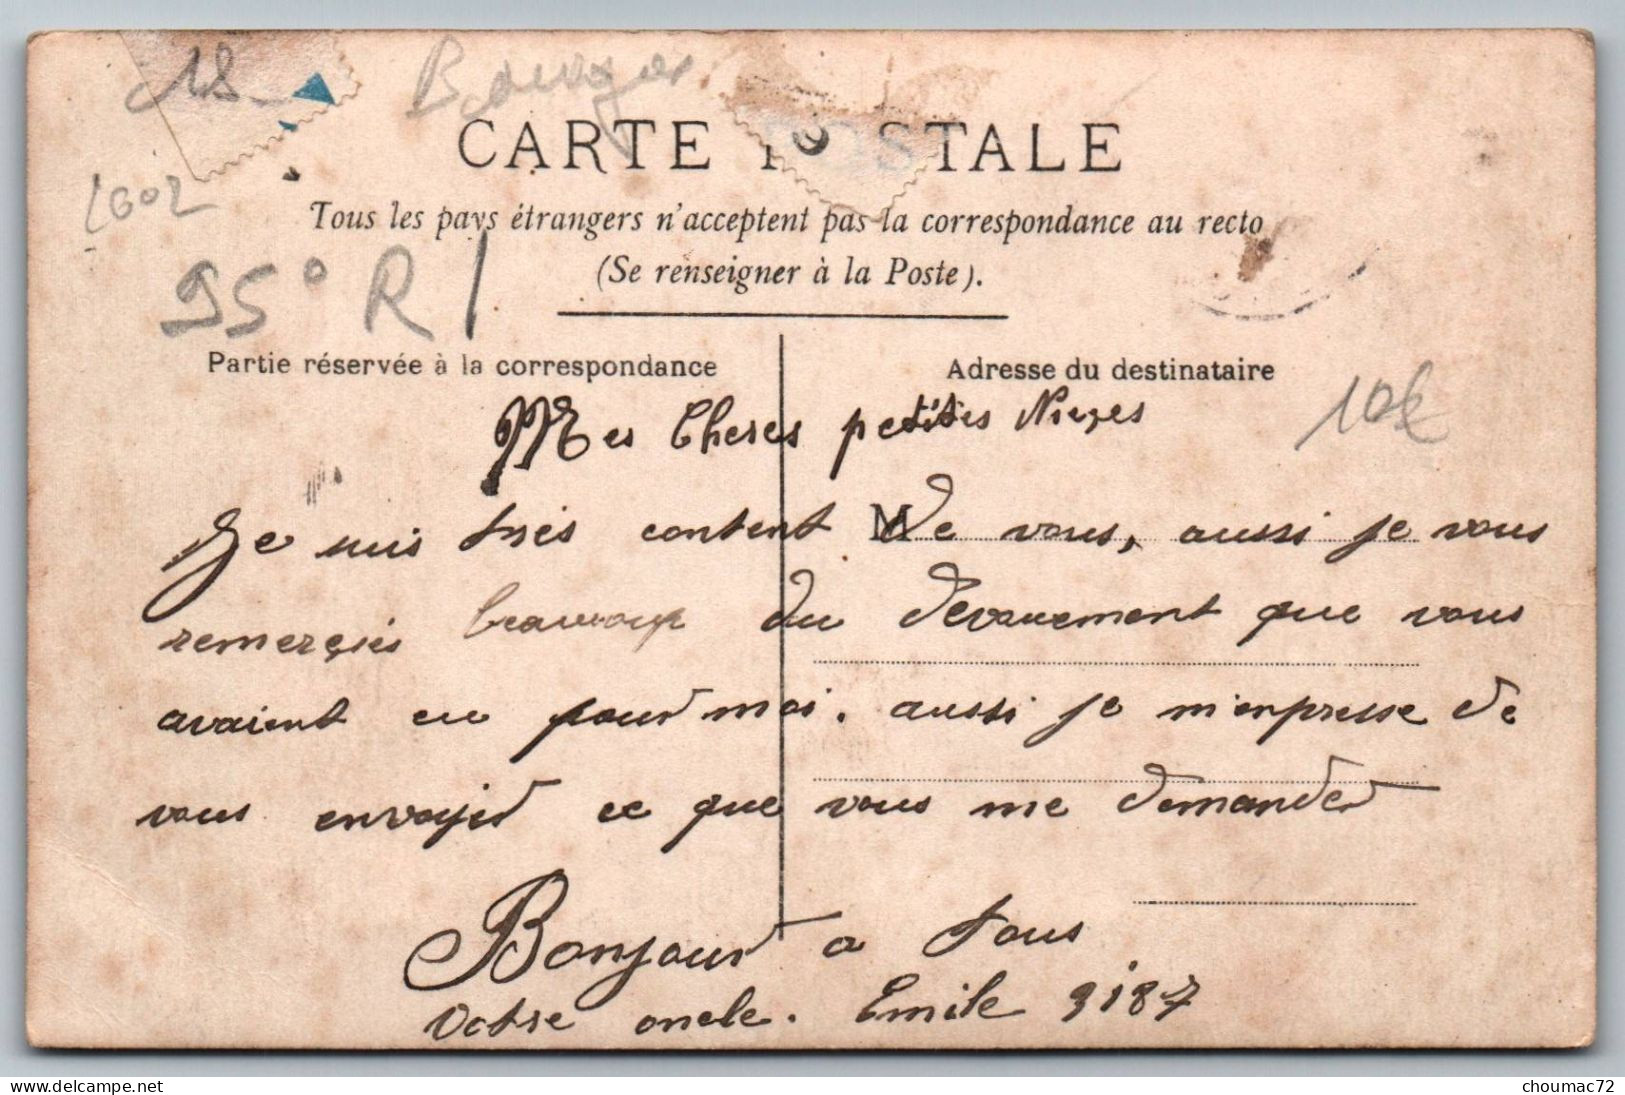 18
Bourges
CARTE POSTALE
Tous les pays étrangers n'acceptent pas la correspondance au recto
(Se renseigner à la Poste).
95° R I
Partie réservée à la correspondance
Adresse du destinataire
10€
Mes Cheres petites Nieçes
Je suis très content de vous, aussi je vous
M
remerçies beaucoup du dévouement que vous
avaient eu pour moi. aussi je m'enpresse de
vous envoyer ce que vous me demander
Bonjour a tous
Votre oncle. Emile 3187
choumac72